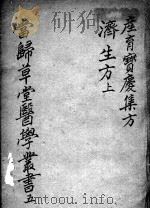 產育寶慶集方
濟生方上
當歸草堂醫學叢書五
www.tcmtoday.com